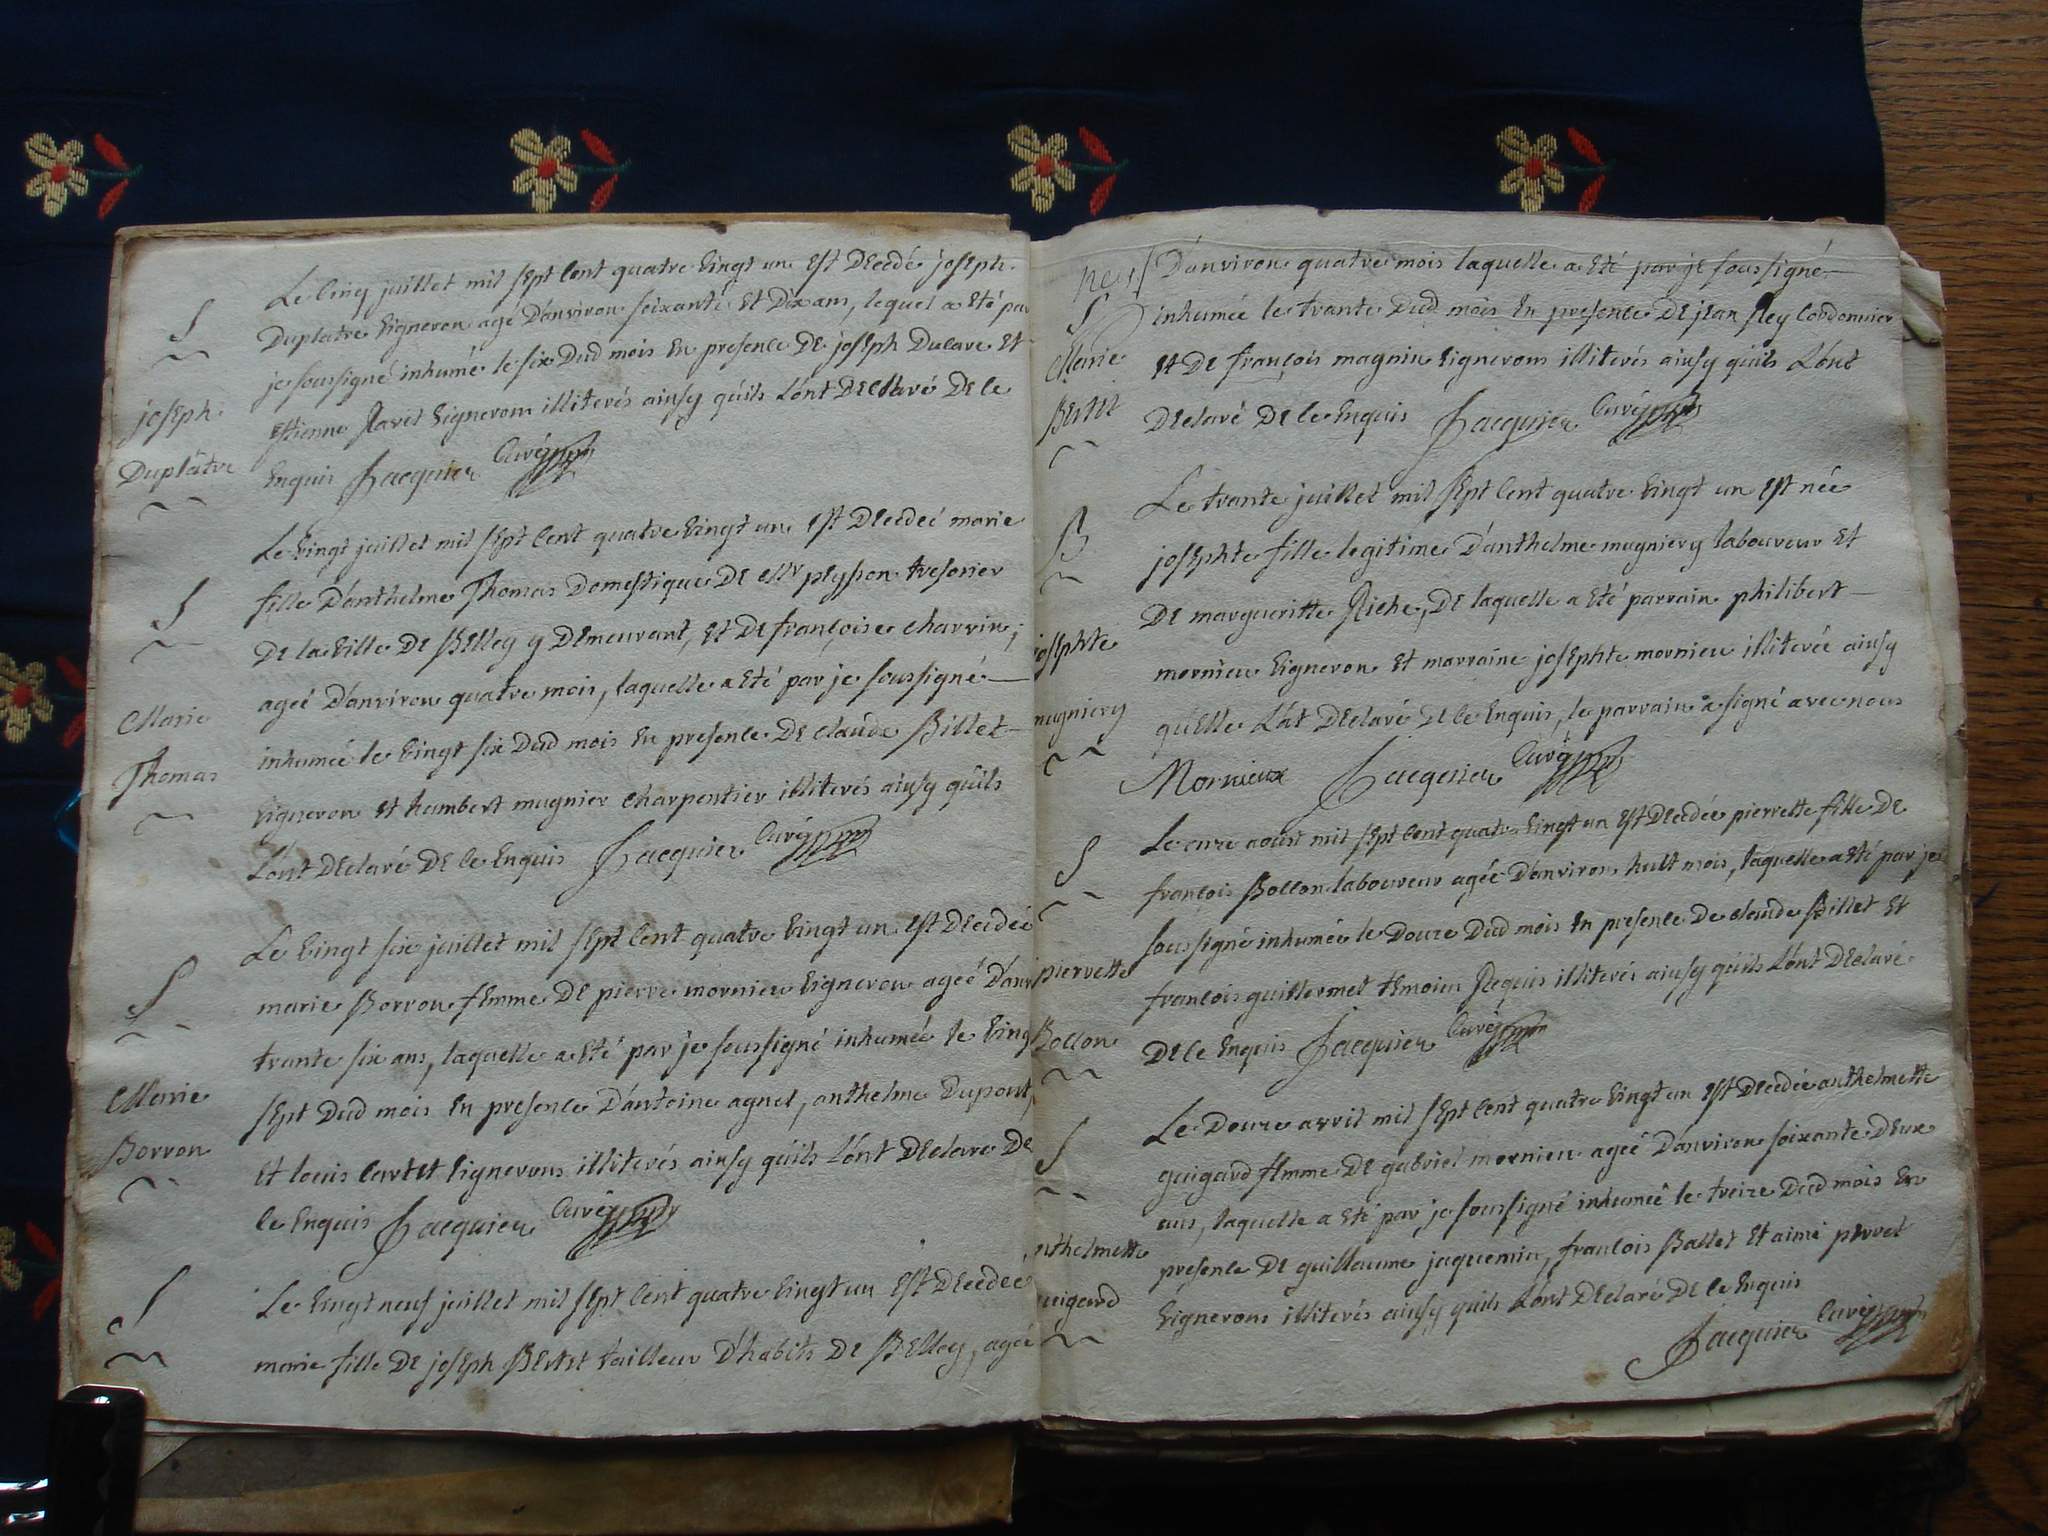 Le cinq juillet mil sept cent quatre vingt un est decedé joseph
Duplatre vigneron agé d'anviron soixante et dix ans, lequel a eté par
je soussigné inhumé le six dud mois en presence de joseph Ducare et
estienne Ravet vignerons illiterés ainsy qu'ils l'ont declaré de ce
enquis Jacquier Curé
S
joseph
Duplâtre
Le vingt juillet mil sept cent quatre vingt un est decedeé marie
fille d'anthelme Thomas domestique de Mr peysson tresorier
de la ville de Belley y demeurant, et de françoise charvin;
ageé d'anviron quatre mois, laquelle a eté par je soussigné
inhumeé le vingt six dud mois en presence de claude Billet
vigneron et humbert mugnier charpentier illiterés ainsy qu'ils
l'ont declaré de ce enquis Jacquier Curé
S
Marie
Thomas
Le vingt six juillet mil sept cent quatre vingt un est decedeé
marie Borron femme de pierre mornieu vigneron ageé d'anvi
trante six ans, laquelle a eté par je soussigné inhumeé le vingt
sept dud mois en presence d'antoine agnet, anthelme Dupont,
et louis cartet vignerons illiterés ainsy qu'ils l'ont declaré de
ce enquis Jacquier Curé
S
Marie
Borron
Le vingt neuf juillet mil sept cent quatre vingt un est decedeé
marie fille de joseph Bertet tailleur d'habits de Belley, ageé
S
D'anviron quatre mois laquelle a eté par je soussigné
inhumeé le trante dud mois en presence de jean Rey cordonnier
et de françois magnin vignerons illiterés ainsy qu'ils l'ont
declaré de ce enquis Jacquier Curé
S
Marie
Bertet
Le trante juillet mil sept cent quatre vingt un est neé
josephte fille legitime d'anthelme mugniery laboureur et
de margueritte Riche, de laquelle a eté parrain philibert
mornieu vigneron et marraine josephte mornieu illitereé ainsy
qu'elle l'at declaré de ce enquis, le parrain a signé avec nous
Mornieux Jacquier Curé
B
josephte
mugniery
Le onze aoust mil sept cent quatre vingt un est decedeé pierrette fille de
françois Bollon laboureur ageé d'anviron huit mois, laquelle a eté par je
soussigné inhumeé le douze dud mois en presence de claude Billet et
françois guillermet temoins Requis illiterés ainsy qu'ils l'ont declaré
de ce enquis Jacquier Curé
S
pierrette
Bollon
Le douze avril mil sept cent quatre vingt un est decedeé anthelmette
guigard femme de gabriel mornieu ageé d'anviron soixante deux
ans, laquelle a eté par je soussigné inhumeé le treize dud mois en
presence de guillaume jaquemin, françois Ballet et aimé pervet
vignerons illiterés ainsy qu'ils l'ont declaré de ce enquis
Jacquier Curé
S
anthelmette
guigard